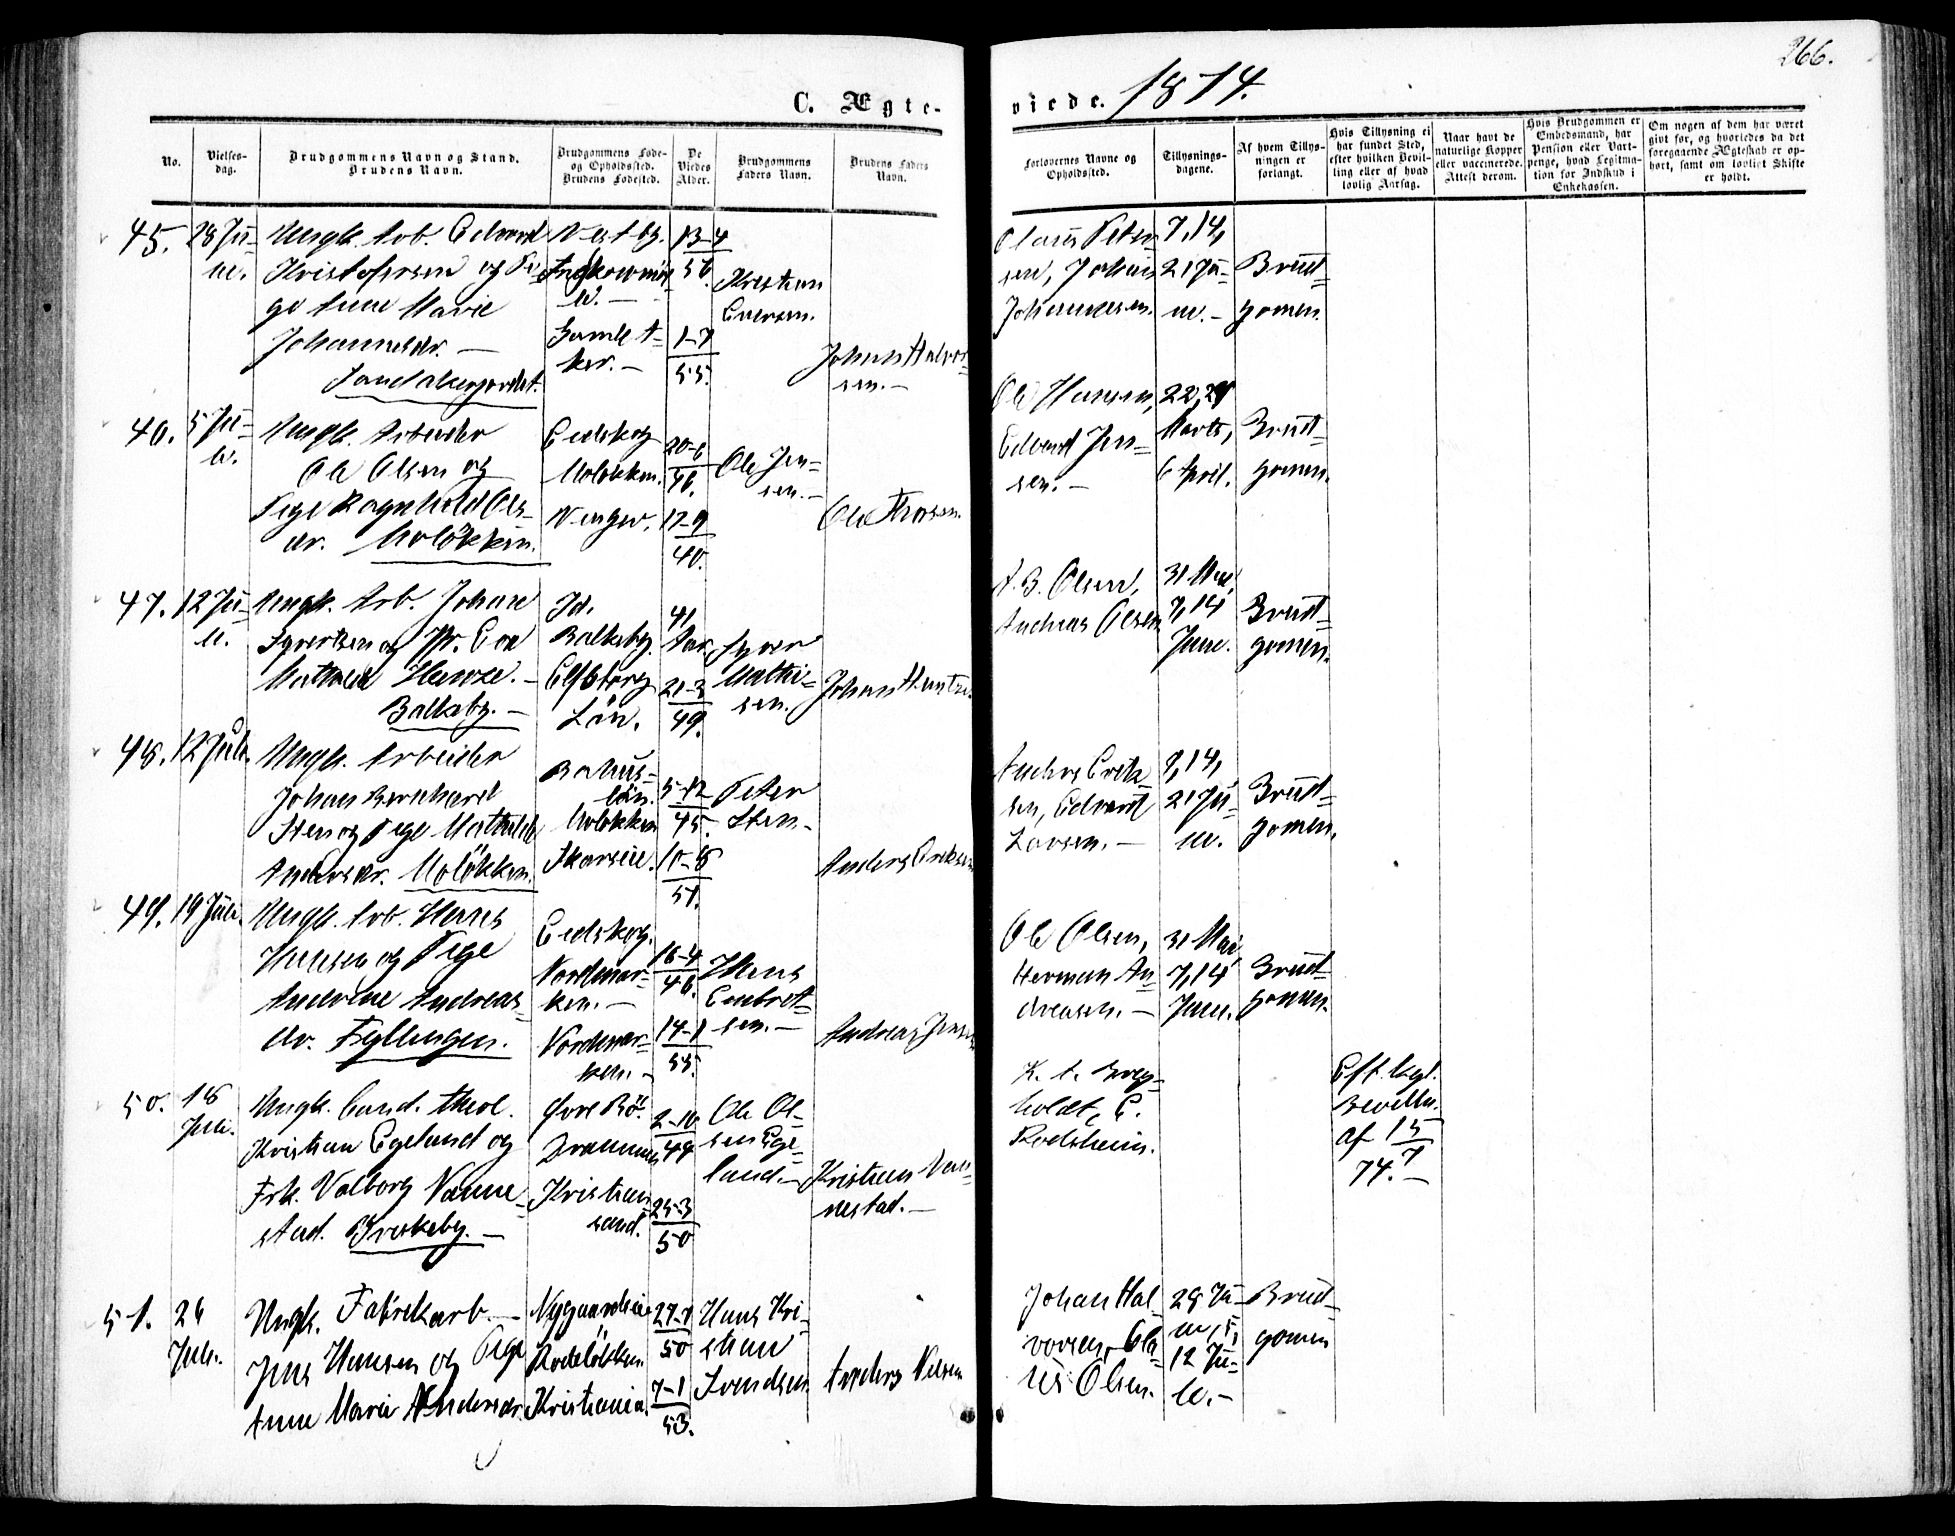 266.
C. Ægte-
viede. 1874.
No.
Vielses-
dag.
Brudgommens Navn og Stand.
Brudens Navn.
Brudgommens Føde-
og Opholdssted.
Brudens Fødested.
De
Viedes
Alder.
Brudgommens
Faders Navn.
Brudens Faders
Navn.
Forlovernes Navne og
Opholdssted.
Tillysnings-
dagene.
Af hvem Tillys-
ningen er
forlangt.
Hvis Tillysning ei
har fundet Sted,
efter hvilken Bevil-
ling eller af hvad
lovlig Aarsag.
Naar havt de
naturlige Kopper
eller vaccinerede.
Attest derom.
Hvis Brudgommen er
Embedsmand, har
Pension eller Vart-
penge, hvad Legitima-
tion for Indskud i
Enkekassen.
Om nogen af dem har været
givt før, og hvorledes da det
foregaaende Ægteskab er op-
hørt, samt om lovligt Skifte
er holdt.
45.
28 Ju-
ni.
Ungk. Arb. Edvard
Kristofersen og Pi-
ge Anne Marie
Johannesdr. —
Sandakerjordet.
Vestby.
Gamle A-
ker. —
13-4
56.
1-7
55.
Kristian
Johan Halvor-
sen. —
Olaus Peter-
sen, Johan
Johannesen.
7, 14,
21 Ju-
ni. —
Brud-
gomen.
46.
5 Ju-
li.
Ungk. Arbeider
Ole Olsen og
Pige Ragnhild Ols-
dr. Moløkken.
Eidskog
Moløkken.
Vinger.
20-6
46.
12-9
40.
Ole Jen-
sen. —
Ole Thorsen.
Ole Hansen,
Edvard Jen-
sen. —
22, 29
Marts,
6 April.
Brud-
gomen.
47.
12 Ju-
li.
Ungk. Arb. Johan
Syvertsen og Pr. Eva
Mathilda Hentze. —
Balkeby. —
Id.
Balkeby.
Elfsborg
Län.
41
Aar.
21-3
49.
Syver
Mathi-
sen.
Johan Hentze.
A. B. Olsen,
Andreas Olsen
31 Mai,
7, 14
Juni.
Brud-
gomen.
48.
12 Juli.
Ungk. Arbeider
Johan Bernhard
Sten og Pige Mathilde
Andersdr. Moløkken.
Bahus-
län.
Moløkken
Skarseie.
5-12
45.
10-8
51.
Peter
Sten.
Anders Eriksen
Anders Erik-
sen, Edvard
Larsen. —
7, 14,
21 Ju-
ni.
Brud-
gomen.
49.
19 Juli.
Ungk. Arb. Hans
Hansen og Pige
Andrine Andreas-
dr. Fyllingen.
Eidskog.
Nordmar-
ken. —
Nordmar-
ken. —
16-4
46.
14-1
55.
Hans
Embret-
sen. —
Andreas Jensen
Ole Olsen,
Herman An-
dreasen. —
31 Mai,
7, 14
Juni.
Brud-
gomen.
50.
18
Juli.
Ungk. Cand. theol.
Kristian Egeland og
Frk. Valborg Nanne-
stad. Briskeby. —
Øvre Bø.
Drammen
Kristian-
sand.
2-10
44
25-3
50
Ole Ol-
sen Ege-
land. —
Kristian Nan-
nestad. —
K. A.
holdt, E.
Rodsheim.
Eft. kgl.
Bevilln.
af 15
7
74. —
51.
26
Juli.
Ungk. Fabrikarb. —
Jens Hansen og Pige
Anne Marie Andersdr.
Nygaardseie
Rodeløkken
Kristiania.
27-7
50
7-1
53.
Hans Kri-
stian
Svendsen
Anders Nilsen
Johan Hal-
vorsen, Ola-
us Olsen.
28 Ju-
ni, 5,
12 Ju-
li. —
Brud-
gomen